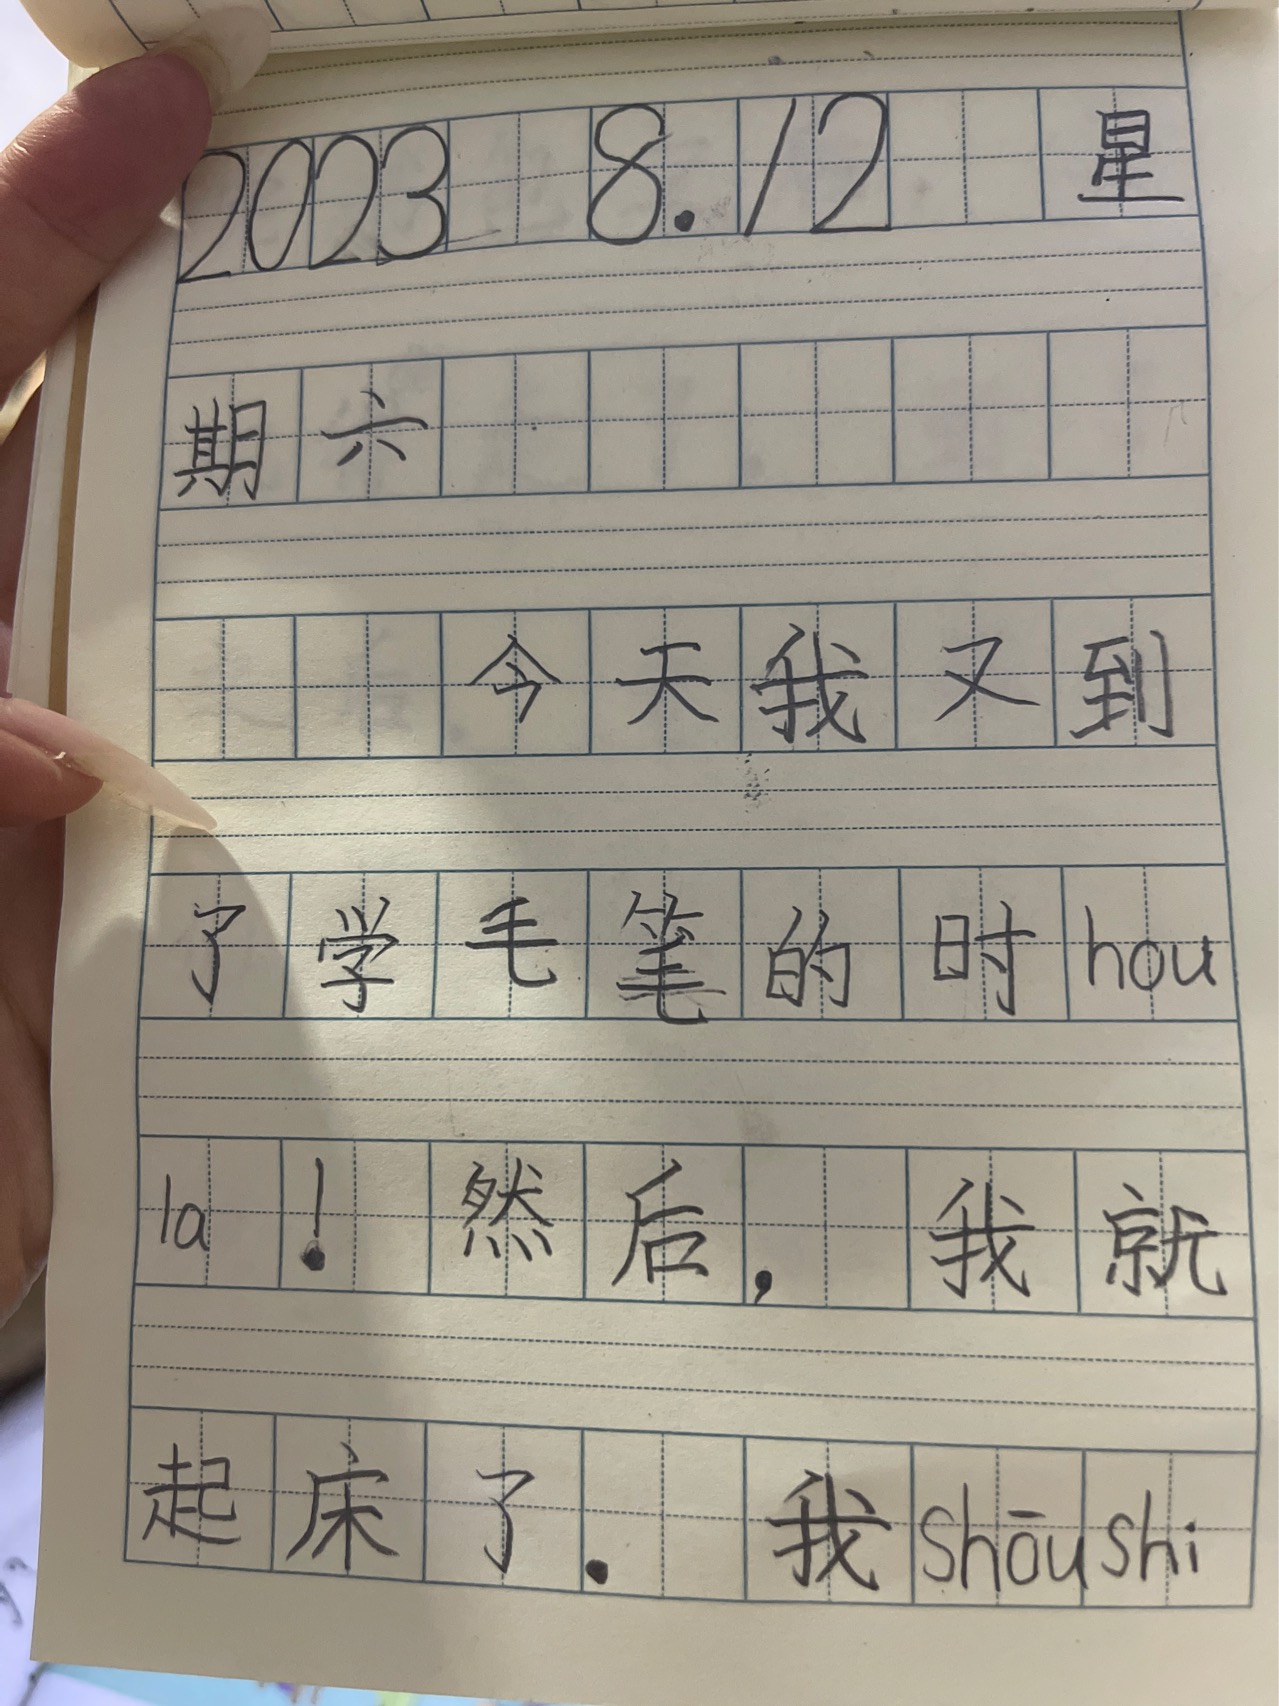 2023 8.12 星
期六
今天我又到
了学毛笔的时hou
la！然后，我就
起床了. 我shōushi